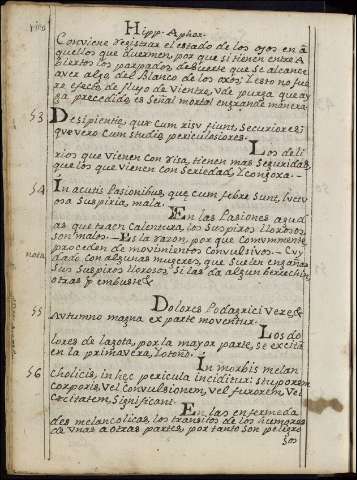 Hipp. Aphor.
Conviene registrar el estado de los ojos en a
quellos que duermen, por que si tienen entre A
biertos los parpados, de suerte que se alcance
aver algo, del Blanco de los ojos, Y esto no fue
re efecto de flujo de Vientre, v de purga que ay
ga precedido es Señal mortal en grande manera.
53 Desipientię, quæ cum risv fiunt, Securiores;
quę vero cum studio, periculosiores.
Los deli
rios que vienen con risa, tienen mas Seguridad,
que los que vienen con Seriedad, Y congoxa.
54 In acutis Pasionibus, quę cum febre Sunt, luctu
osa Suspiria, mala.
En las Pasiones agud
as que traen calentura, los Suspiros llorosos,
son malos. Es la razon, por que comvmmente
proceden de movimientos convulsivos. Cuy
nota dado con algunas mugeres, que Suelen engañar
Sus Suspiros llorosos Si las da algun berrechin,
otras p embuste &
55 Dolores Podagrici Vere, &
Avtumno magna ex parte moventur.
Los do
lores de la gota, por la mayor parte, Se excita
en la primavera, Y otoño.
56 In morbis melan
cholicis, in hęc pericula inciditur: Stuporem
corporis, Vel Convulsionem, vel furorem, Vel
cęcitatem, Significant.
En las enfermeda
des melancolicas, los transitos de los humores
de vnas a otras partes, por tanto son peligro
sos